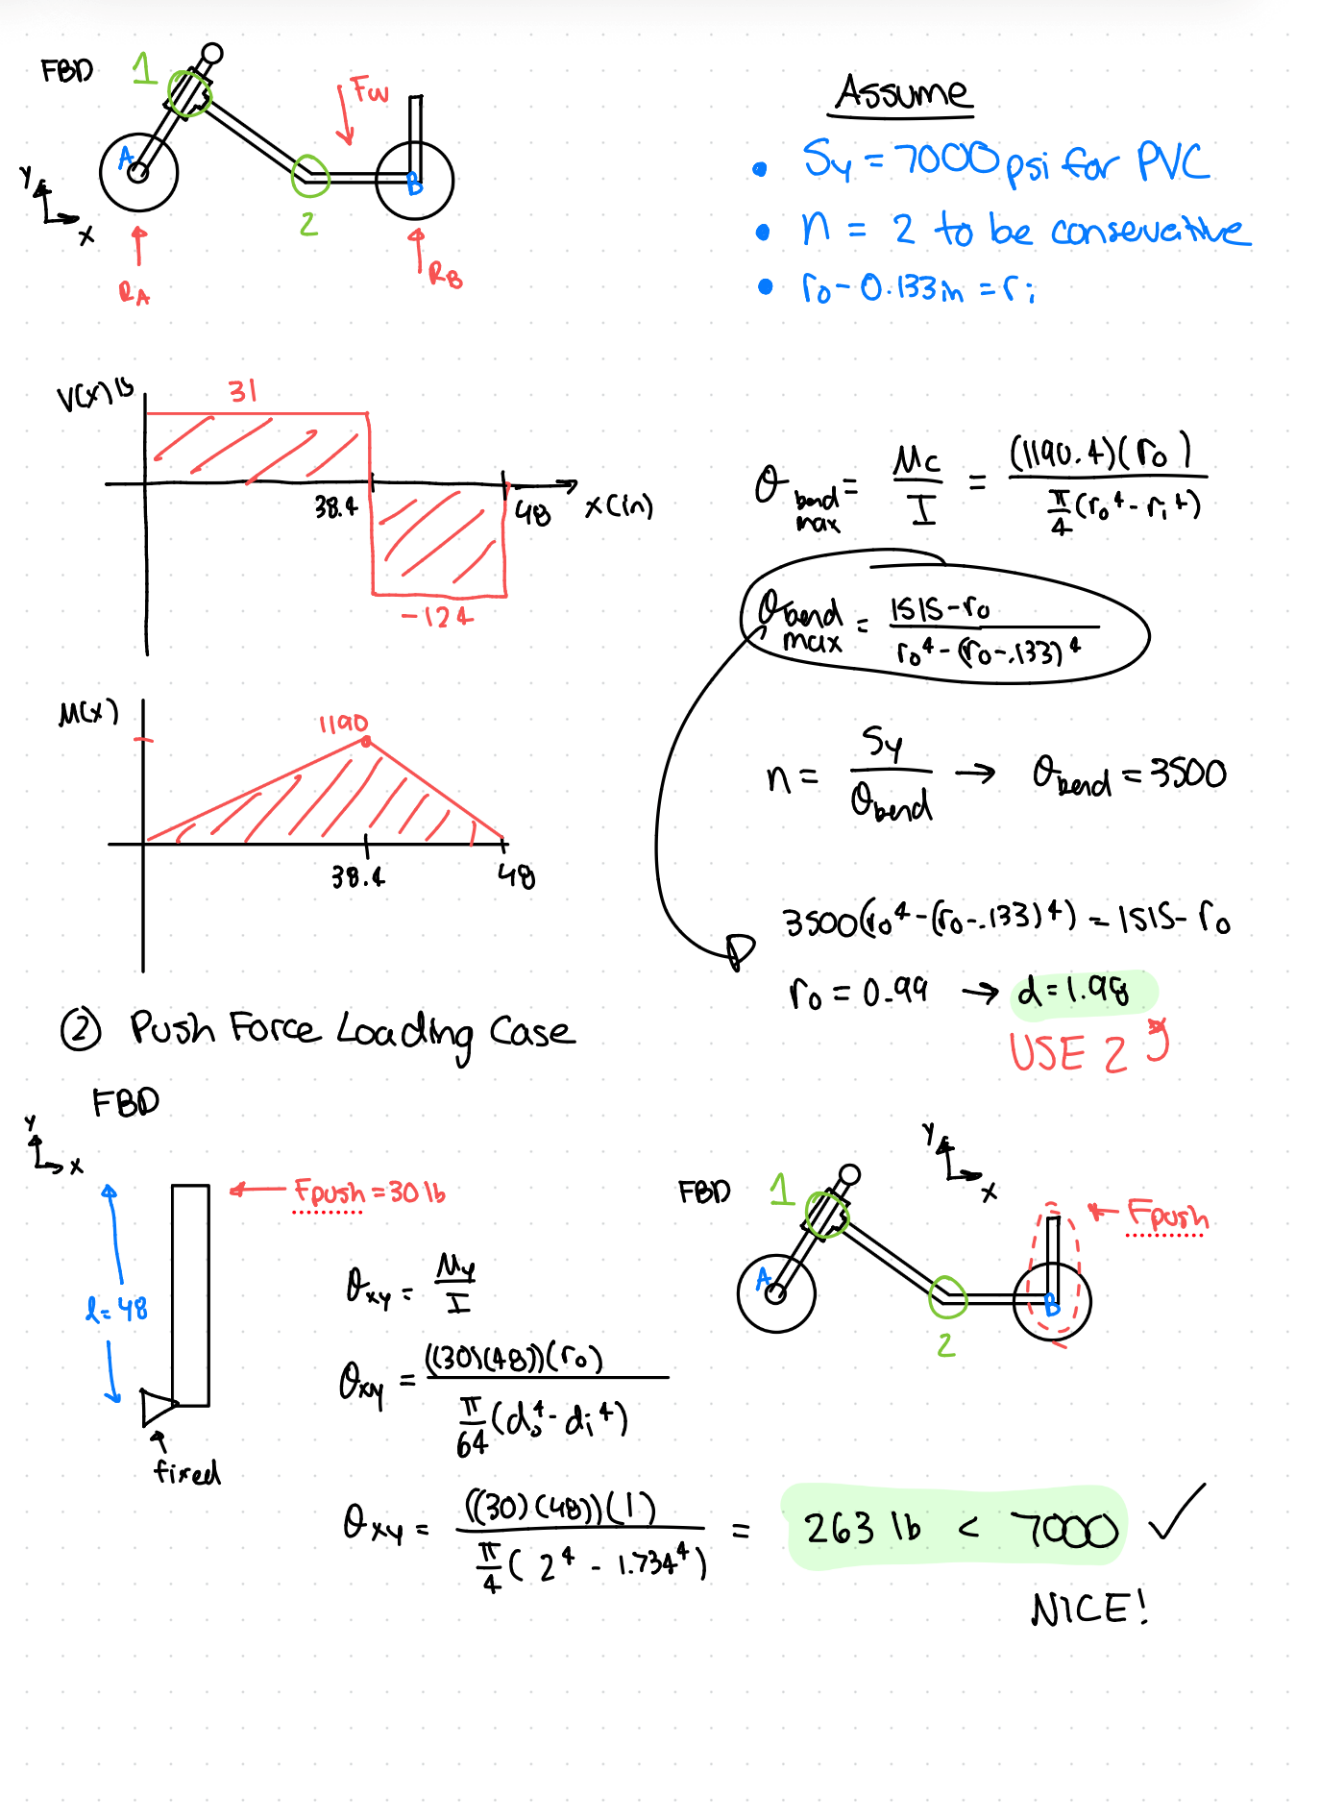 FBD 1
Fw
A
B
2
y
x
RA
RB
Assume
• Sy = 7000 psi for PVC
• n = 2 to be consevative
• ro - 0.133in = ri
V(x) lb
31
38.4
48
x(in)
-124
σ bend max = Mc / I = (1190.4)(ro) / π/4 (ro⁴ - ri⁴)
σ bend max = 1515 - ro / ro⁴ - (ro - .133)⁴
M(x)
1190
38.4
48
n = Sy / σbend → σbend = 3500
3500(ro⁴ - (ro - .133)⁴) = 1515 - ro
ro = 0.99 → d = 1.98
USE 2"
② Push Force Loading Case
FBD
y
x
Fpush = 30 lb
l = 48
fixed
FBD 1
y
x
Fpush
A
B
2
σxy = My / I
σxy = ((30)(48))(ro) / π/64 (do⁴ - di⁴)
σxy = ((30)(48))(1) / π/4 (2⁴ - 1.734⁴) = 263 lb < 7000 ✓
NICE!